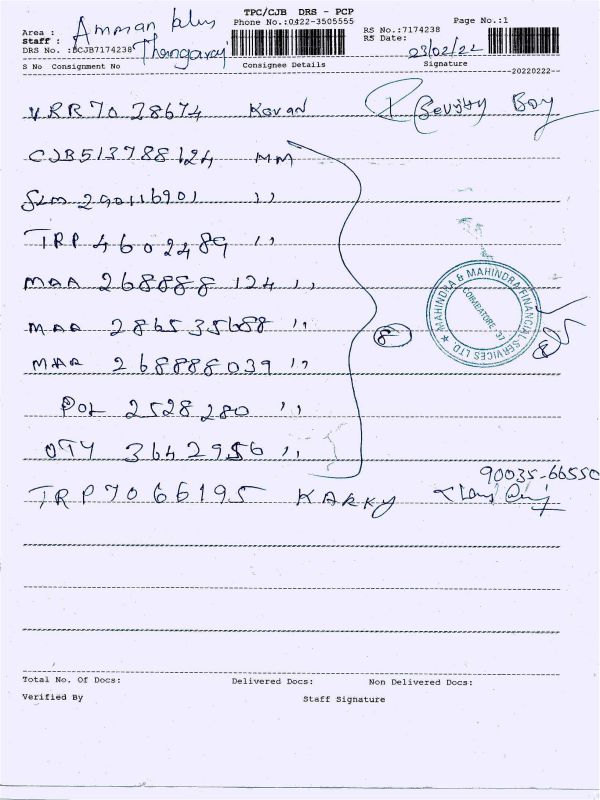 TPC/CJB DRS - PCP
Phone No.:0422-3505555
Page No.:1
Area : Amman
Staff : Thangaraj
DRS No. :DCJB7174238
RS No.:7174238
RS Date: 23/02/22
S No Consignment No Consignee Details Signature
20220222
VRR70 28674 Kovan Boy
CJB513788124 MM
SLM 290116901 ,,
TRP 4602489 ,,
MAA 268888 124 ,,
MAA 286535688 ,,
MAA 268888039 ,,
POL 2528280 ,,
OTY 3642956 ,,
8
MAHINDRA & MAHINDRA FINANCIAL SERVICES LTD ★
COIMBATORE '37
8
90035-66550
TRP7066195 KARKY
Total No. Of Docs: Delivered Docs: Non Delivered Docs:
Verified By Staff Signature